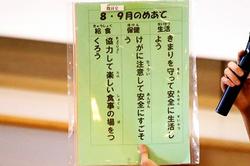 8・9月のめあて
せいかつ
生活
きまりを守って安全に生活し
よう
ほけん
保健
けがに注意して安全にすごそ
う
きゅうしょく
給食
協力して楽しい食事の場をつ
くろう